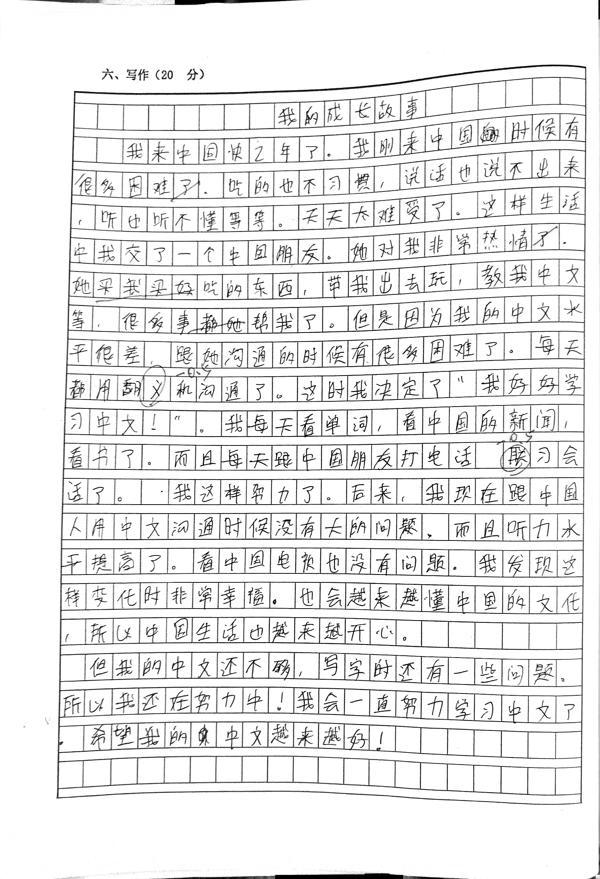 六、写作(20 分)
我的成长故事
我来中国快2年了。我刚来中国时候有
很多困难了,吃的也不习惯,说话也说不出来
,听也听不懂等等。天天太难受了。这样生活
中我交了一个中国朋友。她对我非常热情了.
她买我买好吃的东西,带我出去玩,教我中文
等,很多事都她帮我了。但是因为我的中文水
平很差,跟她沟通的时候有很多困难了。每天
都用翻义机沟通了。这时我决定了“我好好学
习中文!”。我每天看单词,看中国的新闻,
-0.5
看书了。而且每天跟中国朋友打电话 联习会
-0.5
话了。我这样努力了。后来,我现在跟中国
人用中文沟通时候没有大的问题,而且听力水
平提高了。看中国电视也没有问题。我发现这
样变化时非常幸福。也会越来越懂中国的文化
,所以中国生活也越来越开心。
但我的中文还不够,写字时还有一些问题。
所以我还在努力中!我会一直努力学习中文了
.希望我的中文越来越好!